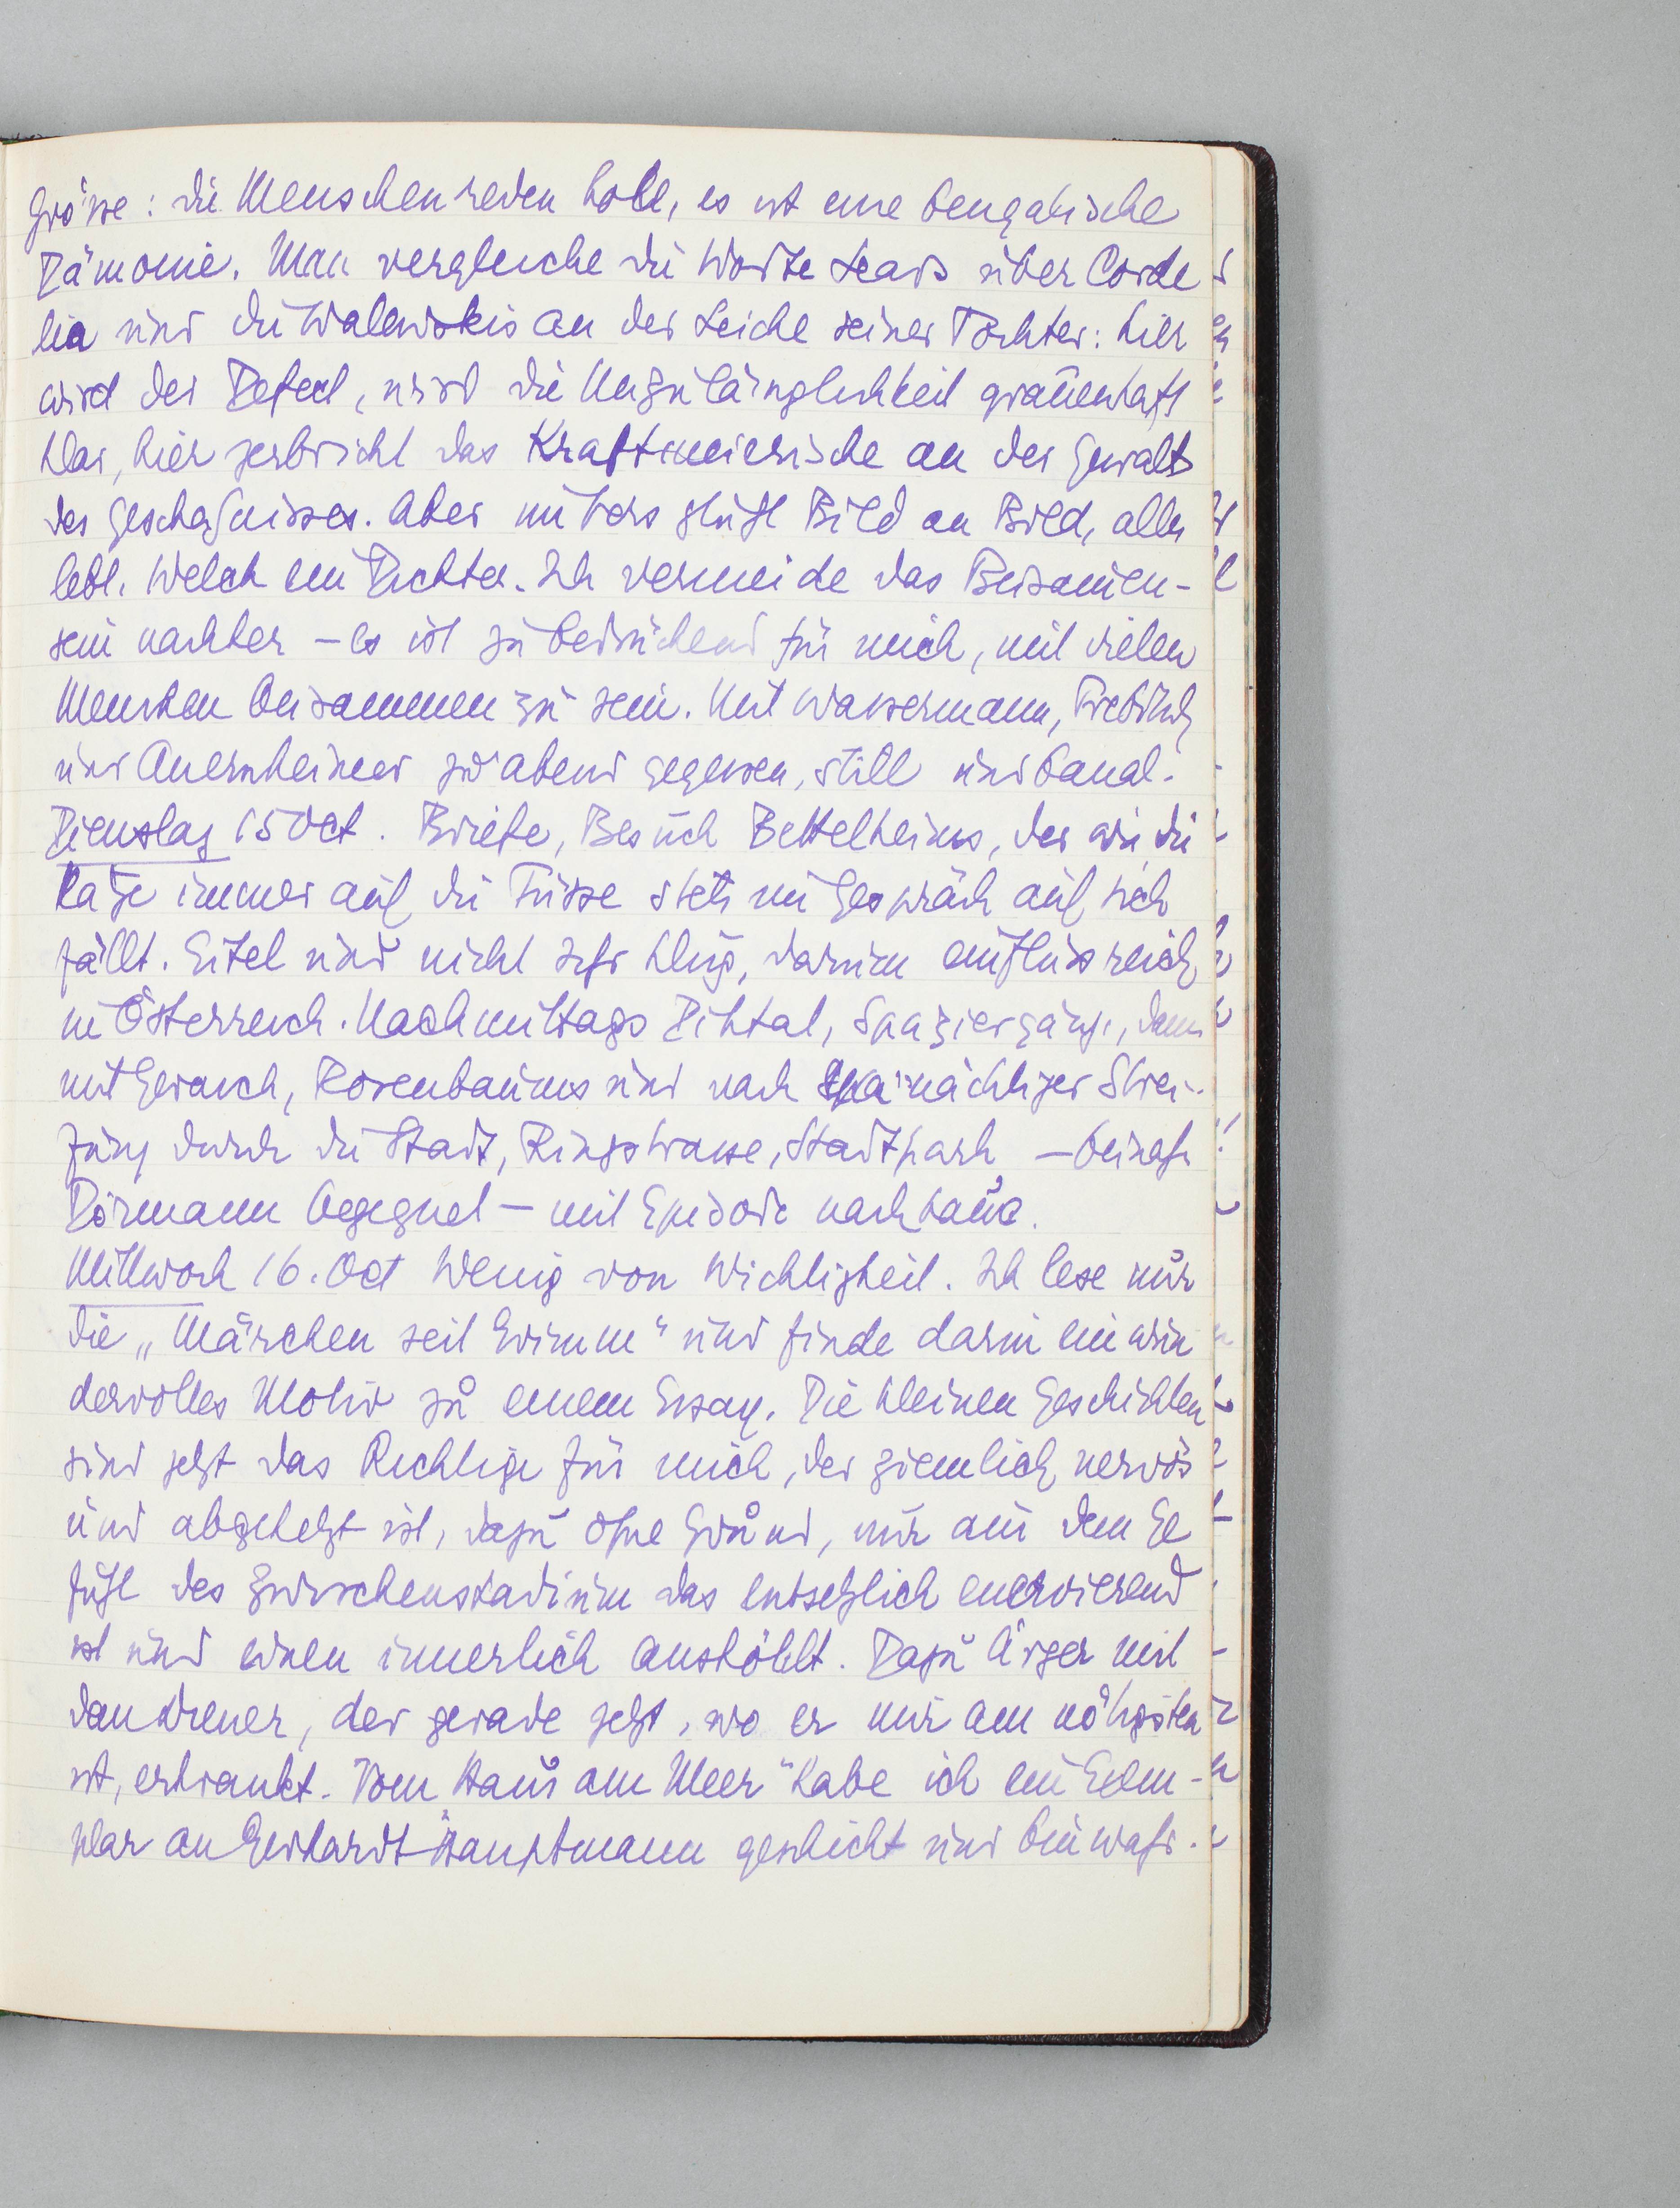 Grösse: die Menschen reden hohl, es ist eine bengalische
Dämonie. Man vergleiche die Worte Lears über Corde
lia und die Walewskis an der Leiche seiner Tochter: hier
wird der Defect, wird die Unzulänglichkeit grauenhaft
klar, hier zerbricht das Kraftmeierische an der Gewalt
des Geschehnisses. Aber im Vers glüht Bild an Bild, alles
lebt. Welch ein Dichter. Ich vermeide das Beisamen-
sein nachher – es ist zu bedrückend für mich, mit vielen
Menschen beisammen zu sein. Mit Wassermann, Trebitsch
und Auernheimer zu abend gegessen, still und banal.
Dienstag 15 Oct. Briefe, Besuch Bettelheims, der wie die
Katze immer auf die Füsse stets im Gespräch auf sich
fällt. Eitel und nicht sehr klug, darum einflussreich
in Österreich. Nachmittags Diktat, Spaziergänge, dann
mit Gerasch, Rosenbaums und nach spätnächtiger Strei-
fung durch die Stadt, Ringstrasse, Stadtpark – beinahe
Dörmann begegnet – mit Episode nachhaus.
Mittwoch 16. Oct Wenig von Wichtigkeit. Ich lese nur
die „Märchen seit Grimm“ und finde darin ein wun
dervolles Motiv zu einem Essay. Die kleinen Geschichten
sind jetzt das Richtige für mich, der ziemlich nervös
und abgehetzt ist, dazu ohne Grund, nur aus dem Ge
fühl des Zwischenstadium das entsetzlich enervierend
ist und einen innerlich aushöhlt. Dazu Ärger mit
dem Diener, der gerade jetzt, wo er mir am nötigsten
ist, erkrankt. Vom „Haus am Meer“ habe ich ein Exem-
plar an Gerhardt Hauptmann geschickt und bin wahr-